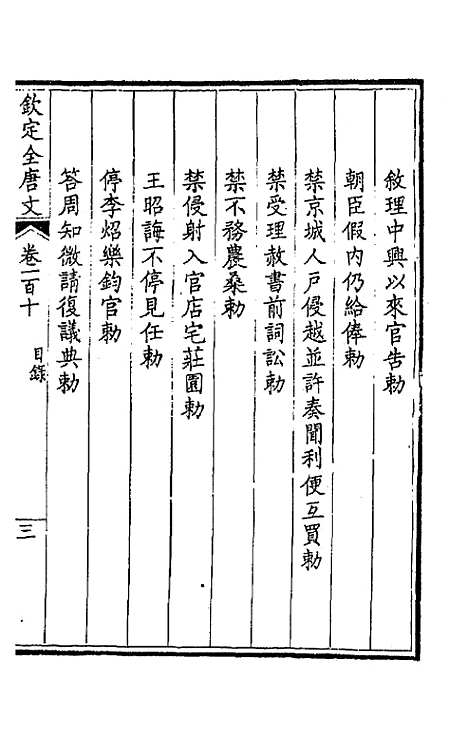 敘理中興以來官告勅
朝臣假內仍給俸勅
禁京城人戶侵越並許奏聞利便互買勅
禁受理赦書前詞訟勅
禁不務農桑勅
禁侵射入官店宅莊園勅
王昭誨不停見任勅
停李炤樂鈞官勅
答周知微請復議典勅
欽定全唐文 卷一百十 目錄 三